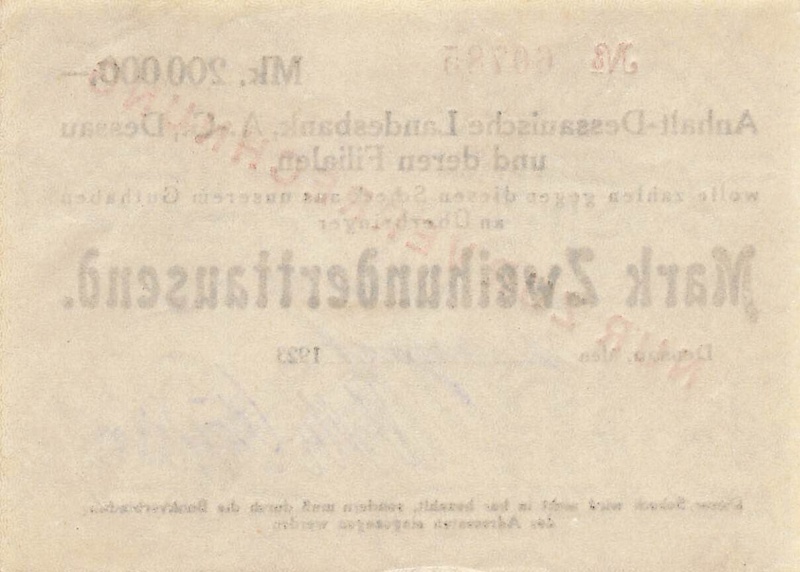 № 60785 Mk. 200 000,—
Anhalt-Dessauische Landesbank, A.-G., Dessau
und deren Filialen
wolle zahlen gegen diesen Scheck aus unserem Guthaben
an Überbringer
Mark Zweihunderttausend.
Dessau, den 1923
NUR ZUR VERRECHNUNG
Dieser Scheck wird nicht in bar bezahlt, sondern muß durch die Bankverbindung
des Adressaten eingezogen werden